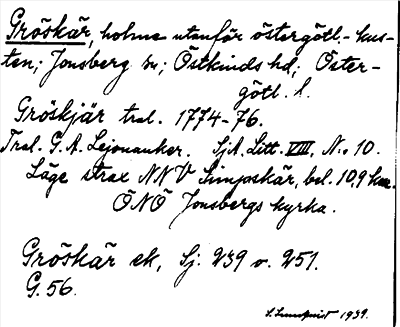 Gröskär, holme utanför östergötl.-kus-
ten; Jonsberg sn; Östkinds hd; Öster-
götl. l.
Gröskjär tral. 1774-76.
Tral. G. A. Lejonanker. SjA. Litt. VIII, N:o 10.
Läge strax NNV Simpskär, bel. 10,9 km.
ÖNÖ Jonsbergs kyrka.
Gröskär ek, Sj. 239 o. 251.
G. 56.
S. Lundqvist 1939.